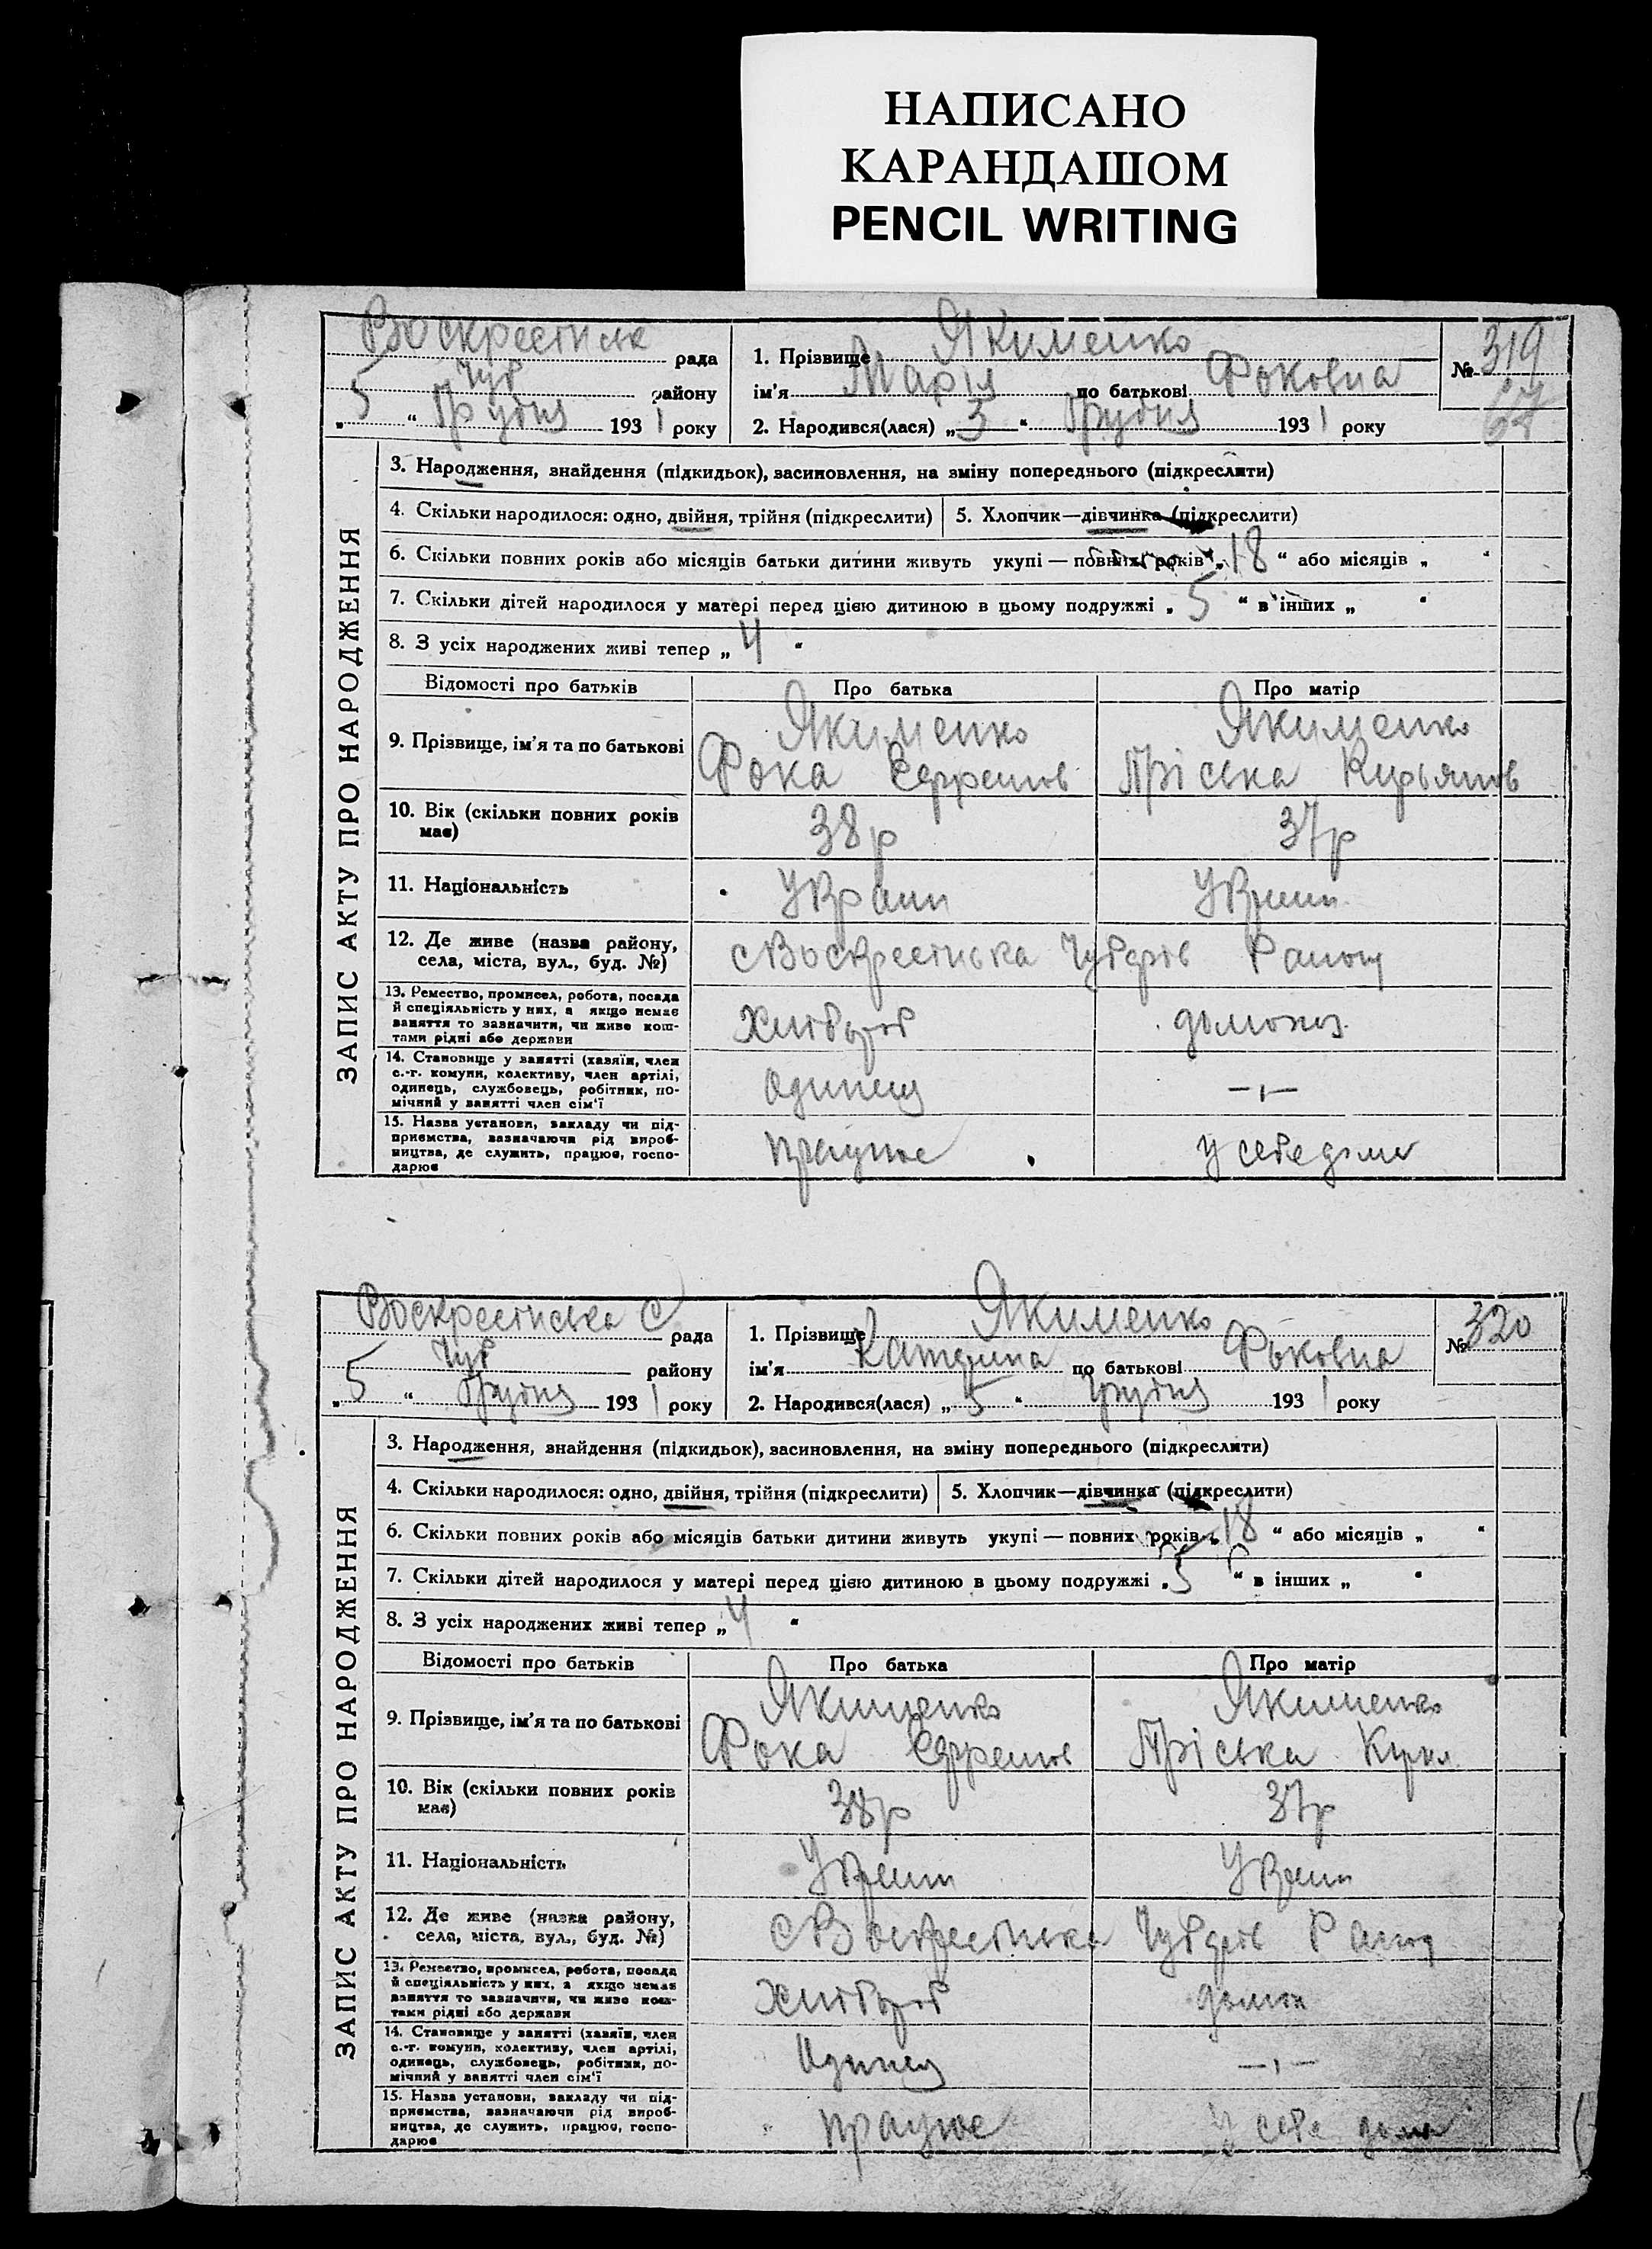 НАПИСАНО
КАРАНДАШОМ
PENCIL WRITING
рада
Чуб району
„5“ Грудня 1931 року
1. Прізвище Якименко
ім'я Марія по батькові Фоковна
2. Народився(лася) „3“ Грудня 1931 року
№ 319
ЗАПИС АКТУ ПРО НАРОДЖЕННЯ
3. Народження, знайдення (підкидьок), засиновлення, на зміну попереднього (підкреслити)
4. Скільки народилося: одно, двійня, трійня (підкреслити)
5. Хлопчик—дівчинка (підкреслити)
6. Скільки повних років або місяців батьки дитини живуть укупі — повних років „18“ або місяців „ “
7. Скільки дітей народилося у матері перед цією дитиною в цьому подружжі „5“ в інших „ “
8. З усіх народжених живі тепер „4“
Відомості про батьків Про батька Про матір
9. Прізвище, ім'я та по батькові
Якименко
Фока Єфремов
Якименко
Пріська
10. Вік (скільки повних років має)
38р
37р
11. Національність
Украин
12. Де живе (назва району,
села, міста, вул., буд. №)
13. Ремество, промисел, робота, посада
й спеціяльність у них, а якщо немає
заняття то зазначити, чи живе кош-
тами рідні або держави
14. Становище у занятті (хазяїн, член
с.-г. комуни, колективу, член артілі,
одинець, службовець, робітник, по-
мічний у занятті член сім'ї
одинец
—„—
15. Назва установи, закладу чи під-
приємства, зазначаючи рід вироб-
ництва, де служить, працює, госпо-
дарює
працює
у себе дома
Воскрестнська С рада
Чуб району
„5“ Грудня 1931 року
1. Прізвище Якименко
ім'я Катерина по батькові Фоковна
2. Народився(лася) „5“ Грудня 1931 року
№ 320
ЗАПИС АКТУ ПРО НАРОДЖЕННЯ
3. Народження, знайдення (підкидьок), засиновлення, на зміну попереднього (підкреслити)
4. Скільки народилося: одно, двійня, трійня (підкреслити)
5. Хлопчик—дівчинка (підкреслити)
6. Скільки повних років або місяців батьки дитини живуть укупі — повних років „18“ або місяців „ “
7. Скільки дітей народилося у матері перед цією дитиною в цьому подружжі „5“ в інших „ “
8. З усіх народжених живі тепер „4“
Відомості про батьків Про батька Про матір
9. Прізвище, ім'я та по батькові
Якименко
Фока Єфремов
Якименко
Пріська
10. Вік (скільки повних років має)
38р
37р
11. Національність
12. Де живе (назва району,
села, міста, вул., буд. №)
13. Ремество, промисел, робота, посада
й спеціяльність у них, а якщо немає
заняття то зазначити, чи живе кош-
тами рідні або держави
14. Становище у занятті (хазяїн, член
с.-г. комуни, колективу, член артілі,
одинець, службовець, робітник, по-
мічний у занятті член сім'ї
Одинец
—„—
15. Назва установи, закладу чи під-
приємства, зазначаючи рід вироб-
ництва, де служить, працює, госпо-
дарює
працює
у себе дома